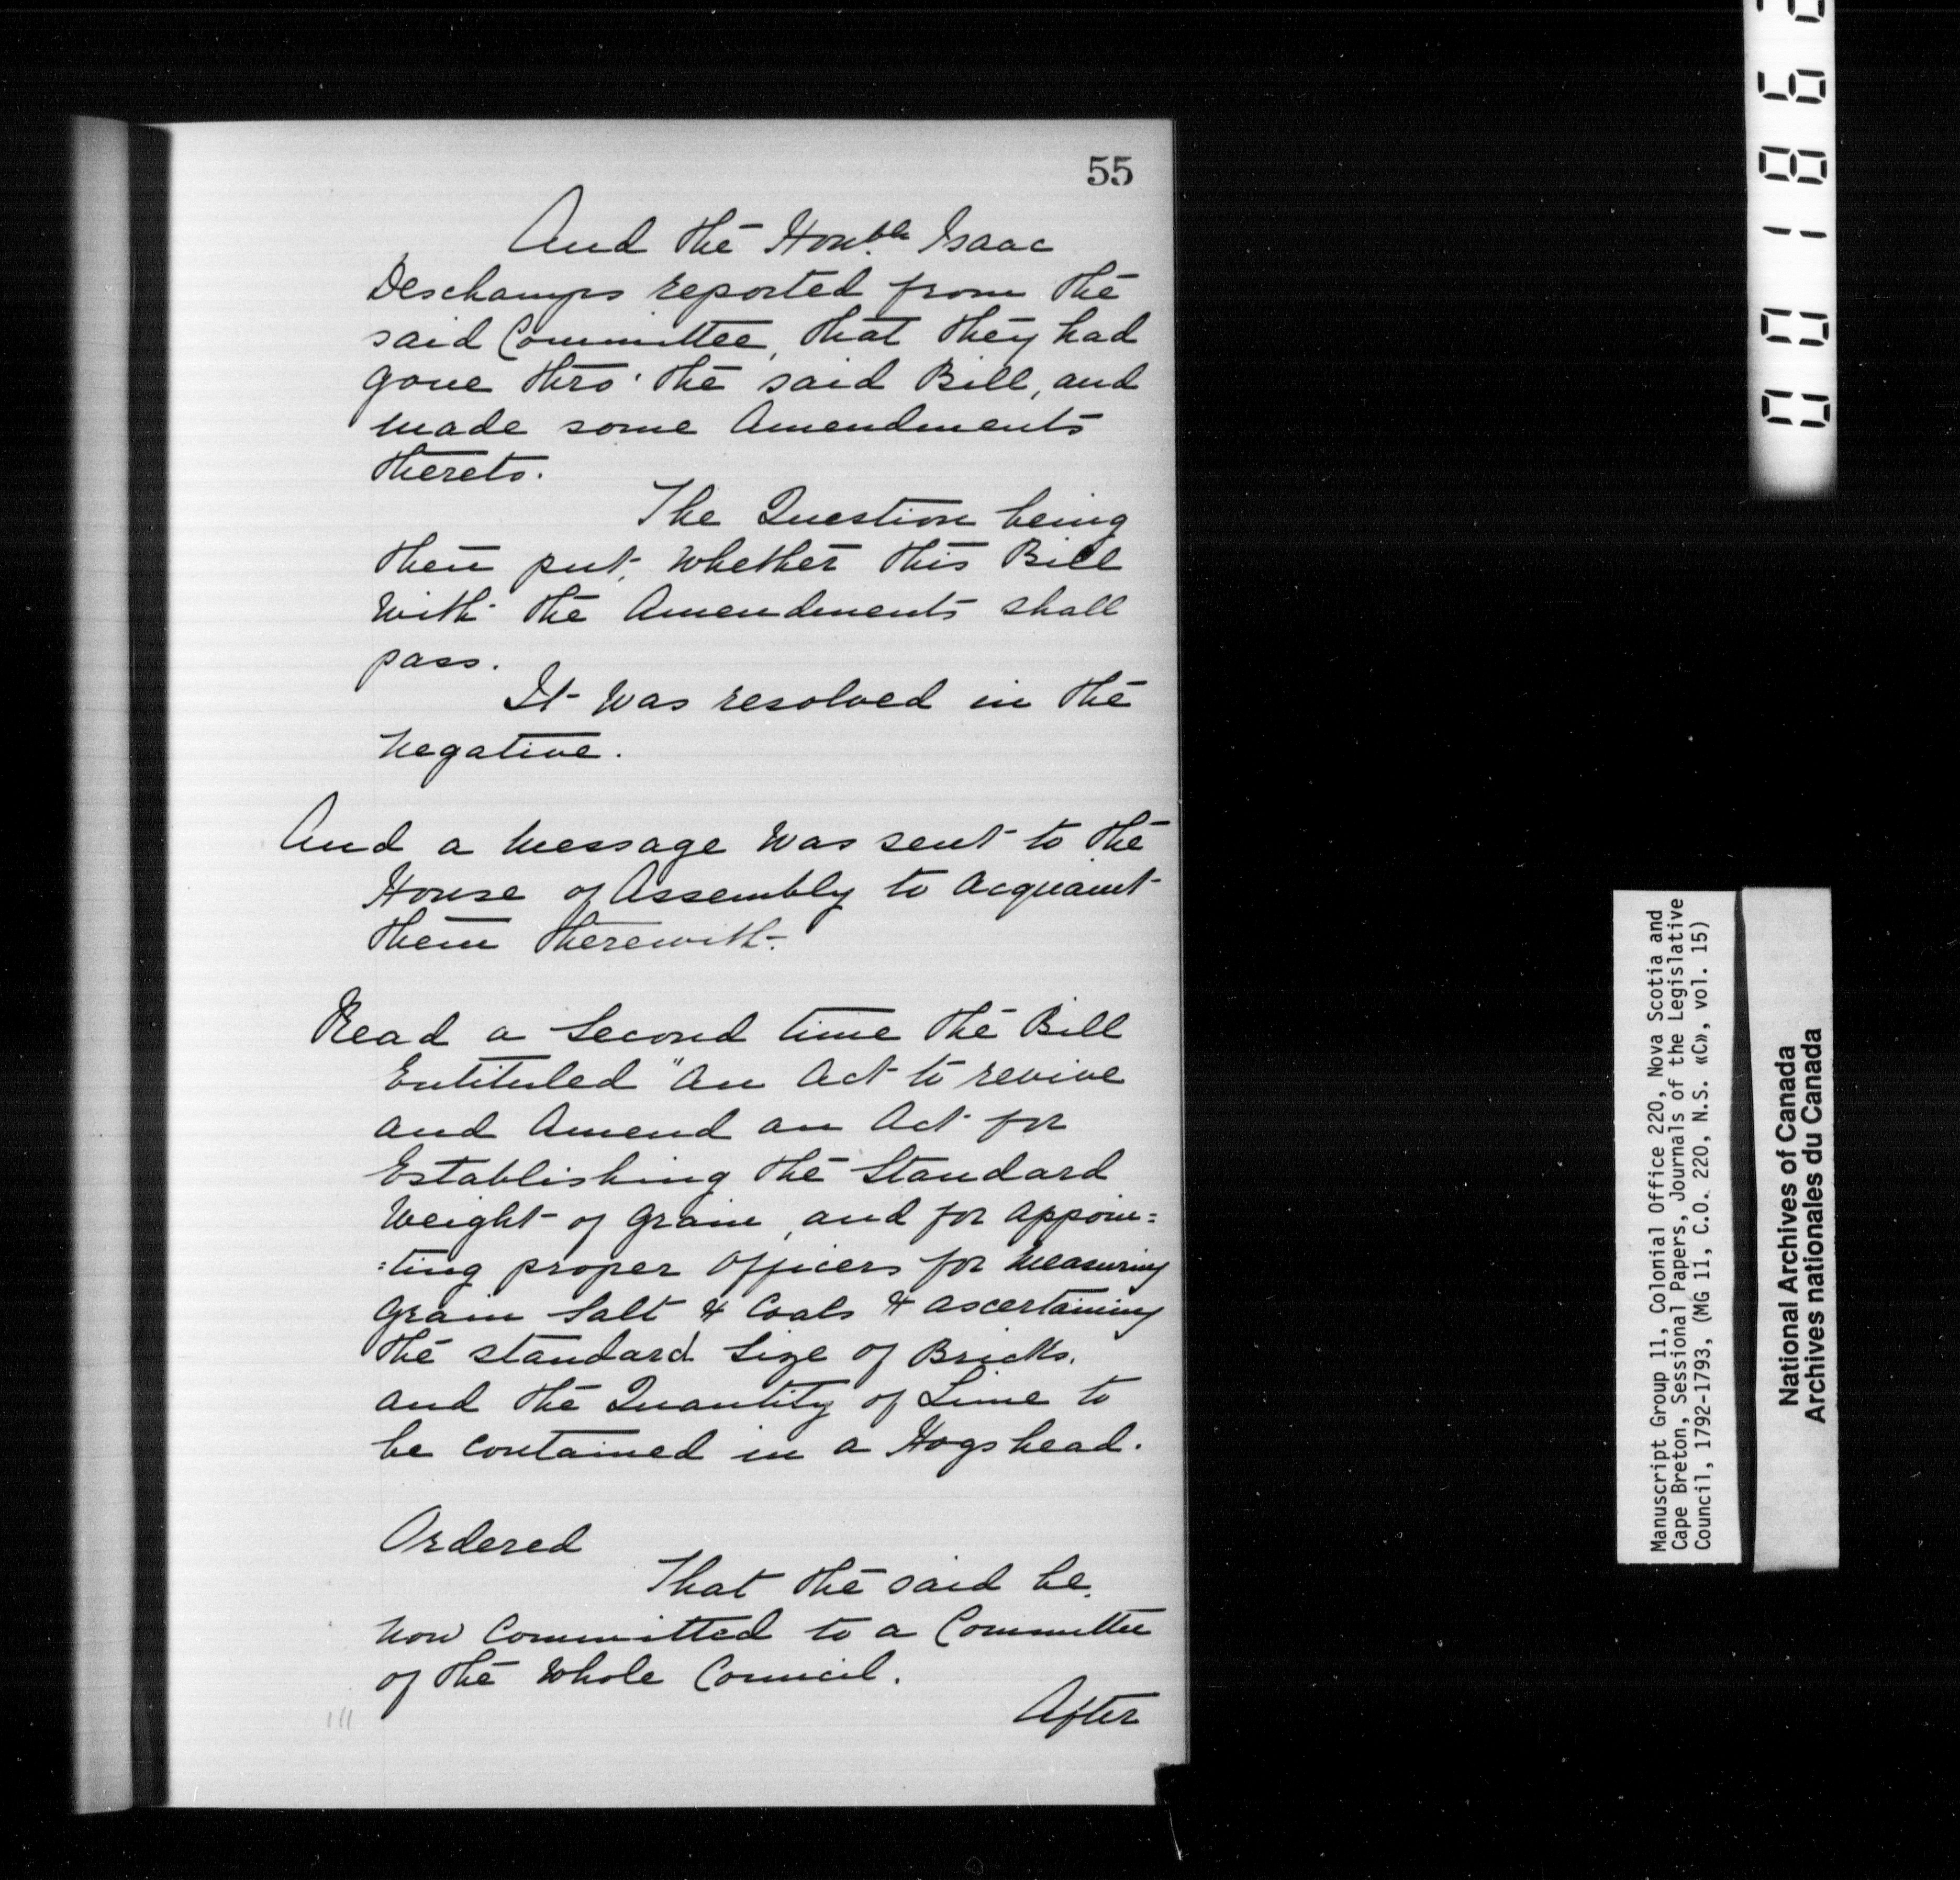 55
And the Honble Isaac
Deschamps reported from the
said Committee, that they had
gone thro' the said Bill, and
made some Amendments
thereto.
The Question being
then put, Whether this Bill
With the Amendments shall
pass.
It Was resolved in the
Negative.
And a Message Was sent to the
House of Assembly to Acquaint
them therewith.
Read a Second time the Bill
Entituled "An Act to revive
and Amend an Act for
Establishing the Standard
Weight of Grain, and for Appoin=
=ting proper Officers for Measuring
Grain Salt & Coals & ascertaining
the standard Size of Bricks,
and the Quantity of Lime to
be Contained in a Hogshead.
Ordered
That the said be
now Committed to a Committee
of the Whole Council.
After
111
Manuscript Group 11, Colonial Office 220, Nova Scotia and
Cape Breton, Sessional Papers, Journals of the Legislative
Council, 1792-1793, (MG 11, C.O. 220, N.S. «C», vol. 15)
National Archives of Canada
Archives nationales du Canada